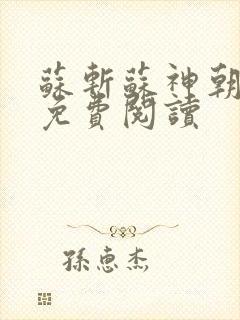 蘇斬蘇神朝
免費閱讀
孫恵杰